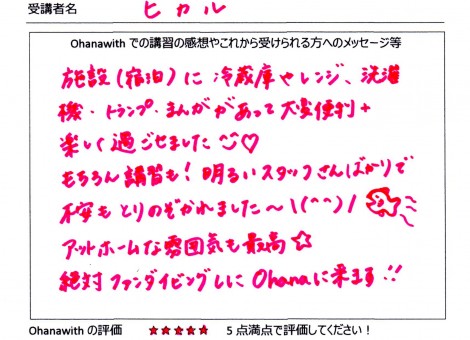 受講者名 ヒカル
Ohanawith での講習の感想やこれから受けられる方へのメッセージ等
施設(宿泊)に 冷蔵庫やレンジ、洗濯
機・トランプ・まんががあって大変便利+
楽しく過ごせました♡
もちろん講習も! 明るいスタッフさんばかりで
不安もとりのぞかれました〜\(^^)/
アットホームな雰囲気も最高☆
絶対ファンダイビングしに Ohanaに来ます!!
Ohanawith の評価 ★★★★★ 5 点満点で評価してください!